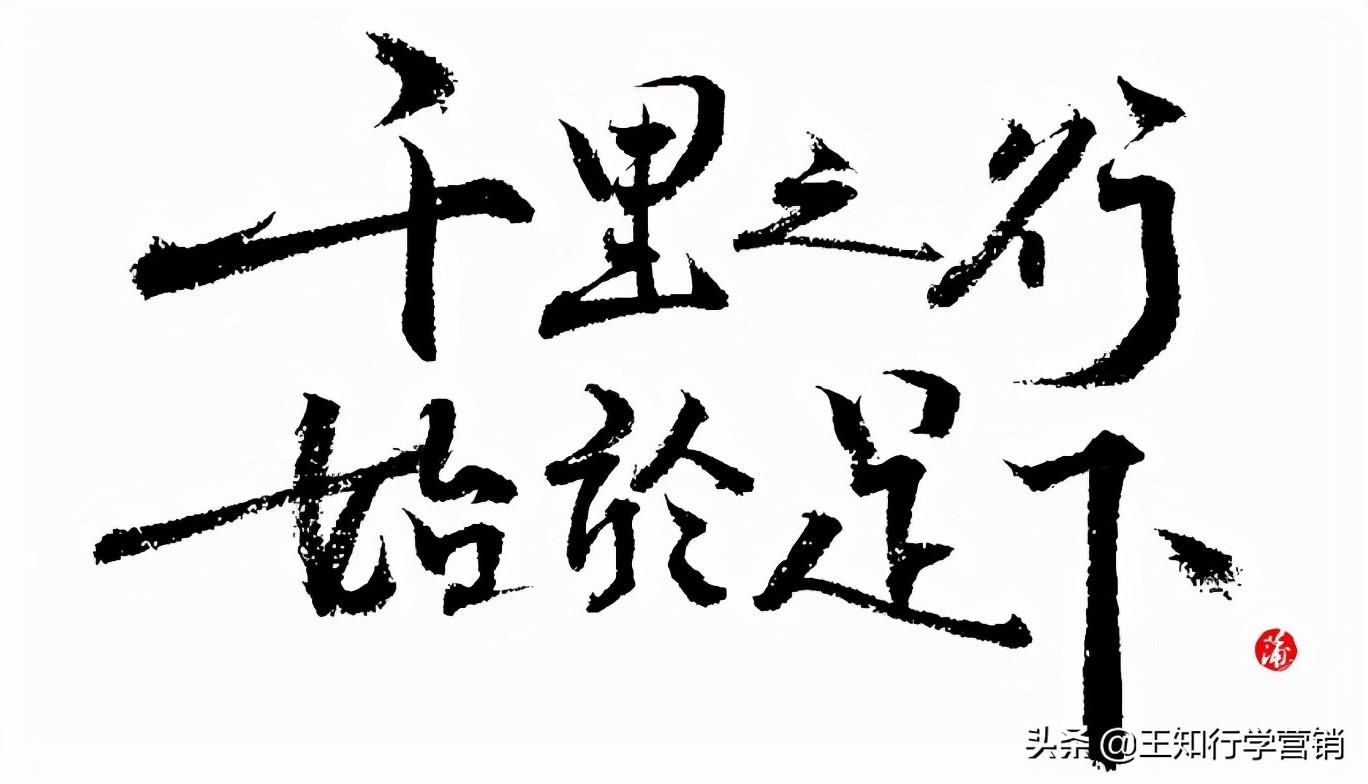 千里之行
始於足下
蒲
头条@王知行学营销